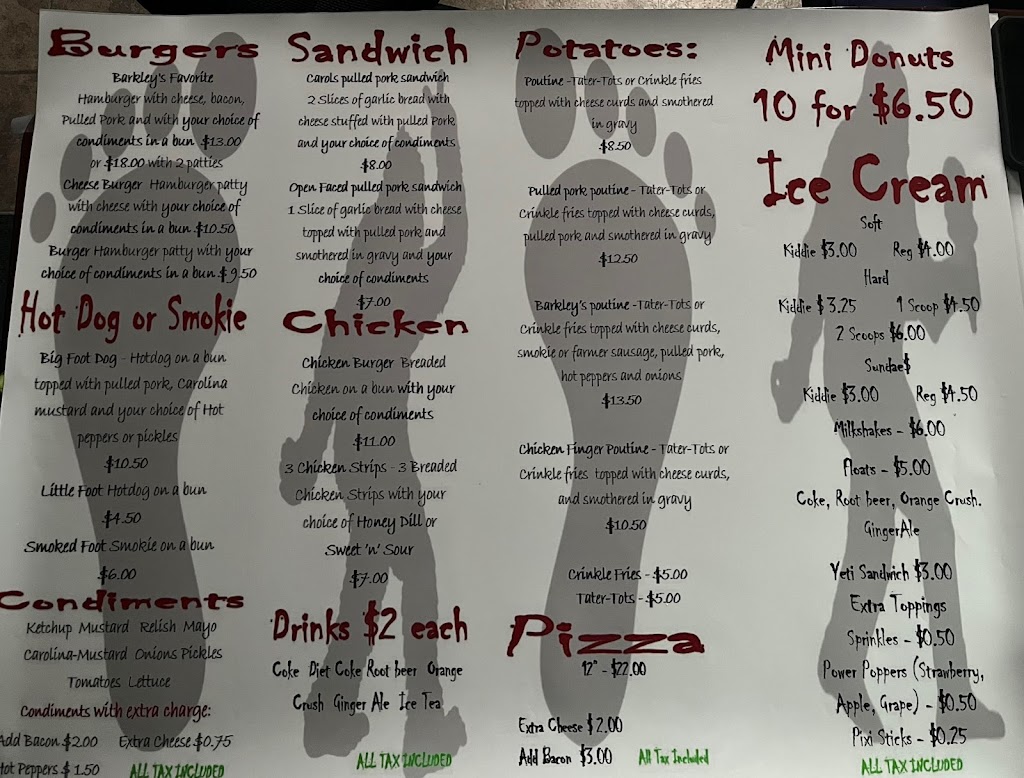 Burgers
Barkley's Favorite
Hamburger with cheese, bacon,
Pulled Pork and with your choice of
condiments in a bun $13.00
or $18.00 with 2 patties
Cheese Burger Hamburger patty
with cheese with your choice of
condiments in a bun $10.50
Burger Hamburger patty with your
choice of condiments in a bun $9.50
Hot Dog or Smokie
Big Foot Dog - Hotdog on a bun
topped with pulled pork, Carolina
mustard and your choice of Hot
peppers or pickles
$10.50
Little Foot Hotdog on a bun
$4.50
Smoked Foot Smokie on a bun
$6.00
Condiments
Ketchup Mustard Relish Mayo
Carolina-Mustard Onions Pickles
Tomatoes Lettuce
Condiments with extra charge:
Add Bacon $2.00 Extra Cheese $0.75
Hot Peppers $ 1.50 ALL TAX INCLUDED
Sandwich
Carols pulled pork sandwich
2 Slices of garlic bread with
cheese stuffed with pulled Pork
and your choice of condiments
$8.00
Open Faced pulled pork sandwich
1 Slice of garlic bread with cheese
topped with pulled pork and
smothered in gravy and your
choice of condiments
$7.00
Chicken
Chicken Burger Breaded
Chicken on a bun with your
choice of condiments
$11.00
3 Chicken Strips - 3 Breaded
Chicken Strips with your
choice of Honey Dill or
Sweet 'n' Sour
$7.00
Drinks $2 each
Coke Diet Coke Root beer Orange
Crush Ginger Ale Ice Tea
ALL TAX INCLUDED
Potatoes:
Poutine -Tater-Tots or Crinkle fries
topped with cheese curds and smothered
in gravy
$8.50
Pulled pork poutine - Tater-Tots or
Crinkle fries topped with cheese curds,
pulled pork and smothered in gravy
$12.50
Barkley's poutine -Tater-Tots or
Crinkle fries topped with cheese curds,
smokie or farmer sausage, pulled pork,
hot peppers and onions
$13.50
Chicken Finger Poutine - Tater-Tots or
Crinkle fries topped with cheese curds,
and smothered in gravy
$10.50
Crinkle Fries - $5.00
Tater-Tots - $5.00
Pizza
12" - $22.00
Extra Cheese $2.00
Add Bacon $3.00 All Tax Included
Mini Donuts
10 for $6.50
Ice Cream
Soft
Kiddie $3.00 Reg $4.00
Hard
Kiddie $ 3.25 1 Scoop $4.50
2 Scoops $6.00
Sundae$
Kiddie $3.00 Reg $4.50
Milkshakes - $6.00
Floats - $5.00
Coke, Root beer, Orange Crush.
GingerAle
Yeti Sandwich $3.00
Extra Toppings
Sprinkles - $0.50
Power Poppers (Strawberry,
Apple, Grape) - $0.50
Pixi Sticks - $0.25
ALL TAX INCLUDED